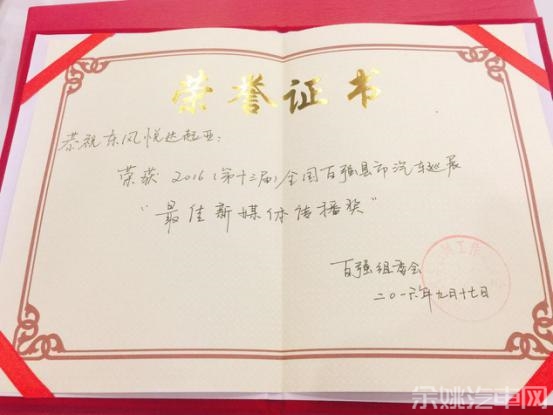 荣誉证书
恭祝东风悦达起亚:
荣获2016(第十三届)全国百强县市汽车巡展
"最佳新媒体传播奖"
百强组委会
二〇一六年九月十七日
余姚汽车网